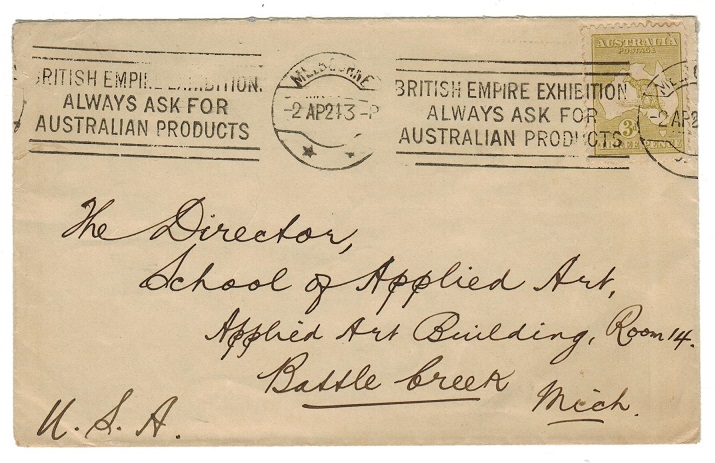 BRITISH EMPIRE EXHIBITION.
ALWAYS ASK FOR
AUSTRALIAN PRODUCTS
MELBOURNE
BRITISH EMPIRE EXHIBITION
ALWAYS ASK FOR
AUSTRALIAN PRODUCTS
AUSTRALIA
POSTAGE
3D
THREE PENCE
The Director,
School of Applied Art,
Applied Art Building, Room 14.
Battle Creek
Mich.
U. S. A.